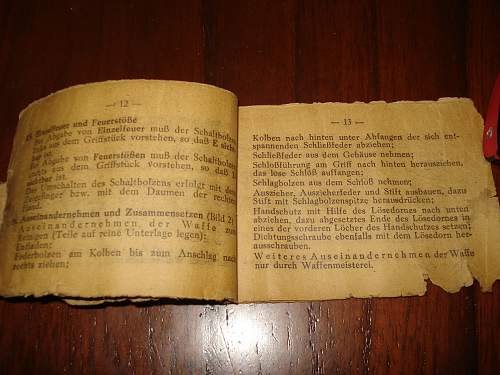 — 12 —
Einzelfeuer und Feuerstöße
Abgabe von Einzelfeuer muß der Schaltbolzen
aus dem Griffstück vorstehen, so daß E
ist.
Abgabe von Feuerstößen muß der Schaltbolzen
aus dem Griffstück vorstehen, so daß
ist.
Umschalten des Schaltbolzens erfolgt mit dem
bzw. mit dem Daumen der rechten
Auseinandernehmen und Zusammensetzen (Bild 2)
Auseinandernehmen der Waffe zum
Reinigen (Teile auf reine Unterlage legen):
Entladen;
Federbolzen am Kolben bis zum Anschlag nach
rechts ziehen;
— 13 —
Kolben nach hinten unter Abfangen der sich ent-
spannenden Schließfeder abziehen;
Schließfeder aus dem Gehäuse nehmen;
Schließführung am Griff nach hinten herausziehen,
das lose Schloß auffangen;
Schlagbolzen aus dem Schloß nehmen;
Auszieher, Auszieherfeder und Stift ausbauen, dazu
Stift mit Schlagbolzenspitze herausdrücken;
Handschutz mit Hilfe des Lösedornes nach unten
abziehen, dazu abgesetztes Ende des Lösedornes in
eines der vorderen Löcher des Handschutzes setzen;
Dichtungsschraube ebenfalls mit dem Lösedorn her-
ausschrauben.
Weiteres Auseinandernehmen der Waffe
nur durch Waffenmeisterei.